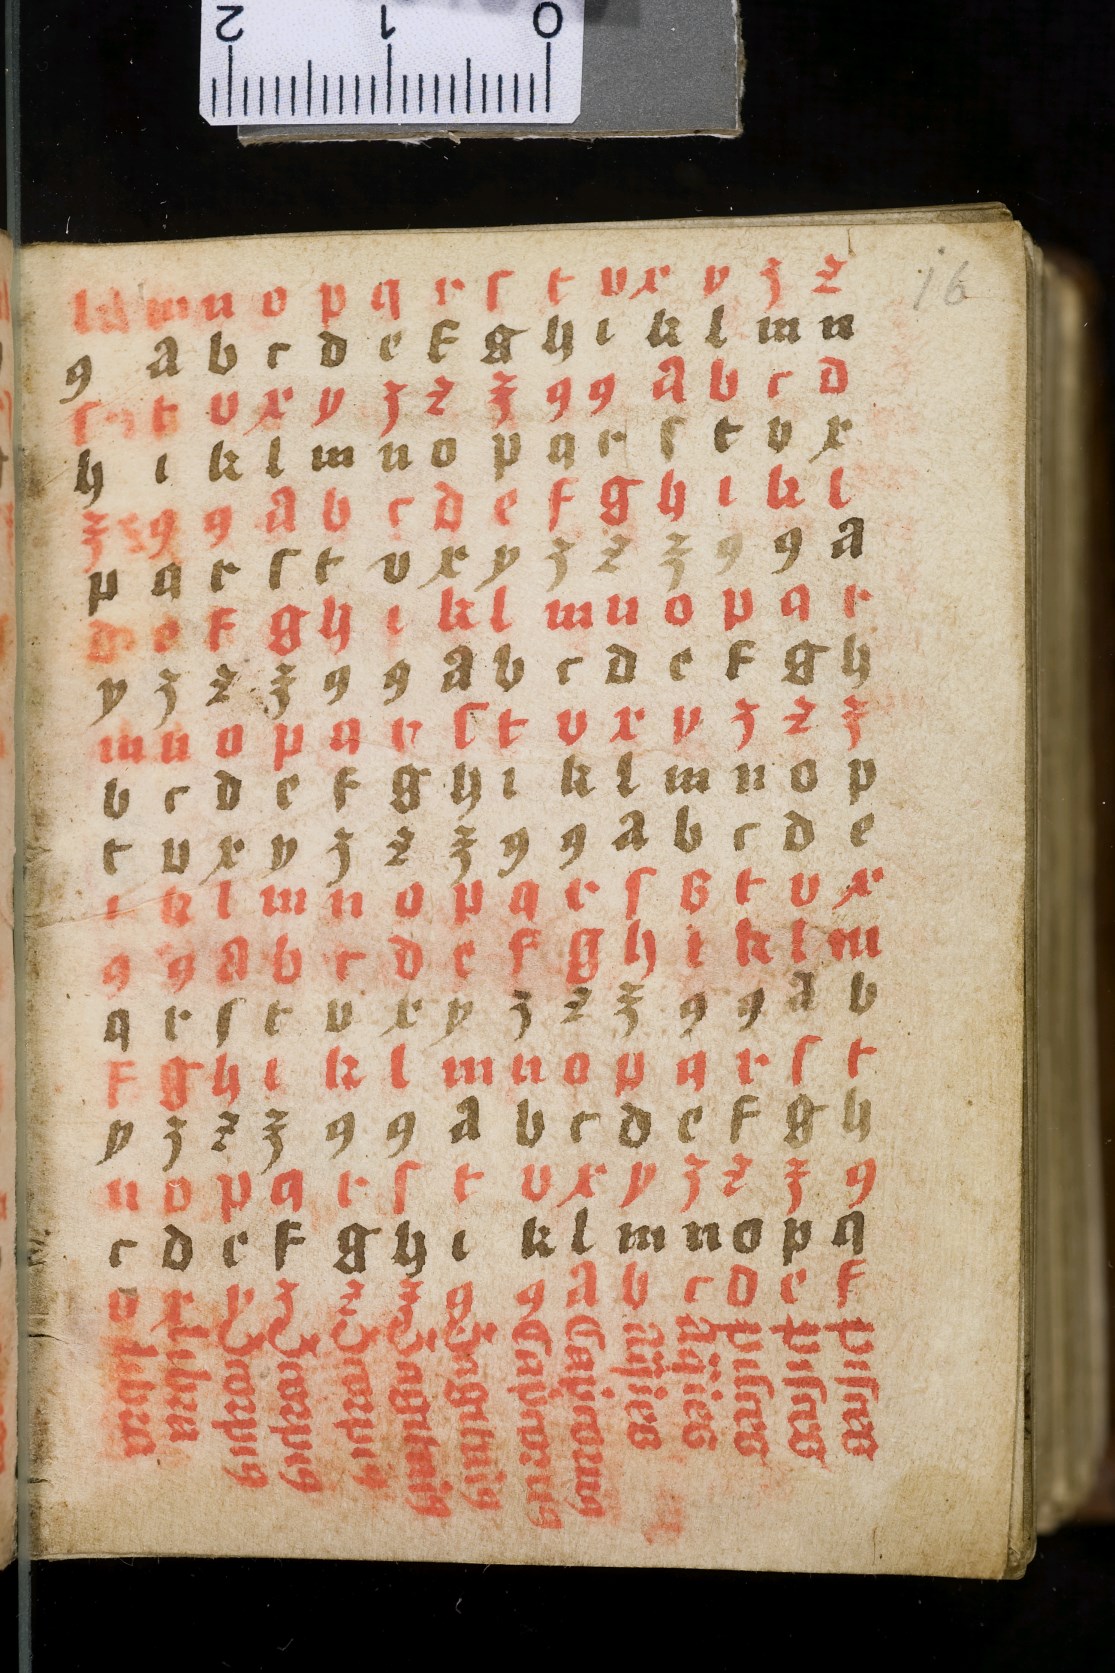 2 1 0
16
l m n o p q r ſ t v x y ʒ z
9 a b c d e f g h i k l m n
ſ t v x y ʒ z ʒ 9 9 a b c d
h i k l m n o p q r ſ t v x
ʒ 9 9 a b c d e f g h i k l
p q r ſ t v x y ʒ z ʒ 9 9 a
d e f g h i k l m n o p q r
y ʒ z ʒ 9 9 a b c d e f g h
m n o p q r ſ t v x y ʒ z ʒ
b c d e f g h i k l m n o p
t v x y ʒ z ʒ 9 9 a b c d e
i k l m n o p q r ſ ß t v x
9 9 a b c d e f g h i k l m
q r ſ t v x y ʒ z ʒ 9 9 a b
f g h i k l m n o p q r ſ t
y ʒ z ʒ 9 9 a b c d e f g h
n o p q r ſ t v x y ʒ z ʒ 9
c d e f g h i k l m n o p q
v x y ʒ z ʒ 9 9 a b c d e f
libra
libra
Scorpi9
Scorpi9
Scorpi9
Sagitari9
Sagitari9
Capricorn9
Capricorn9
Aq̈ries
Aq̈ries
piſces
piſces
piſces